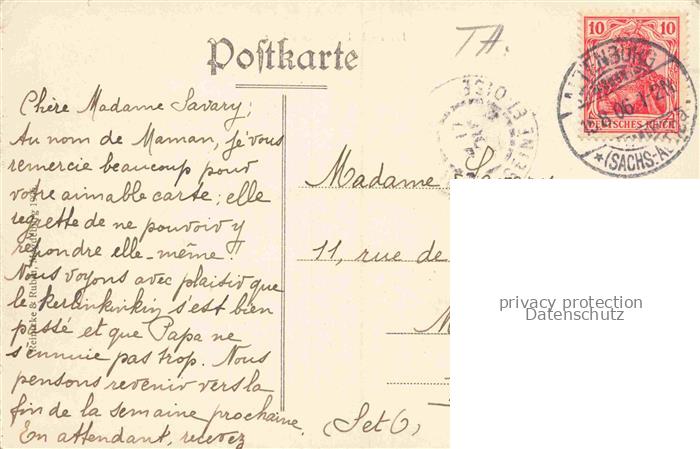 Postkarte
T A.
10 10
DEUTSCHES REICH
ALTENBURG
3.8.06. 1-2N
*(SACHS-ALT
ET OISE
Chère Madame Savary;
Au nom de Maman, je vous
remercie beaucoup pour
votre aimable carte; elle
regrette de ne pouvoir y
répondre elle-même.
Nous voyons avec plaisir que
le Kerlinkinkin s'est bien
passé et que Papa ne
s'ennuie pas trop. Nous
pensons revenir vers la
fin de la semaine prochaine.
En attendant, recevez
Madame
11, rue de
M
(Set O)
Reinicke & Rubin,
privacy protection
Datenschutz